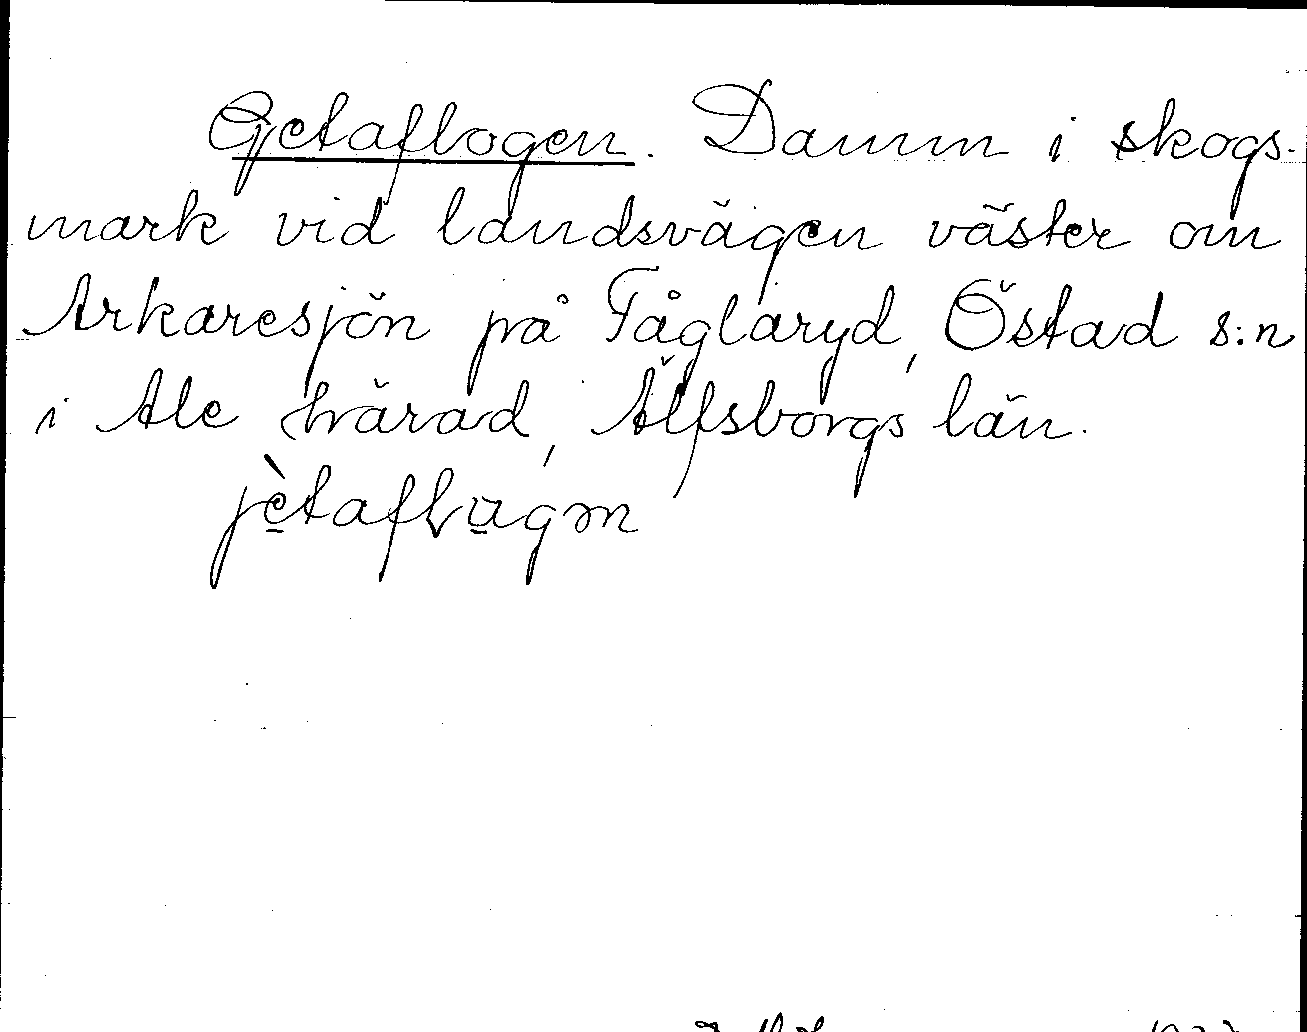 Getaflogen. Damm i skogs-
mark vid landsvägen väster om
Arkaresjön på Tåglaryd, Östad s:n
i Ale härad, Älfsborgs län.